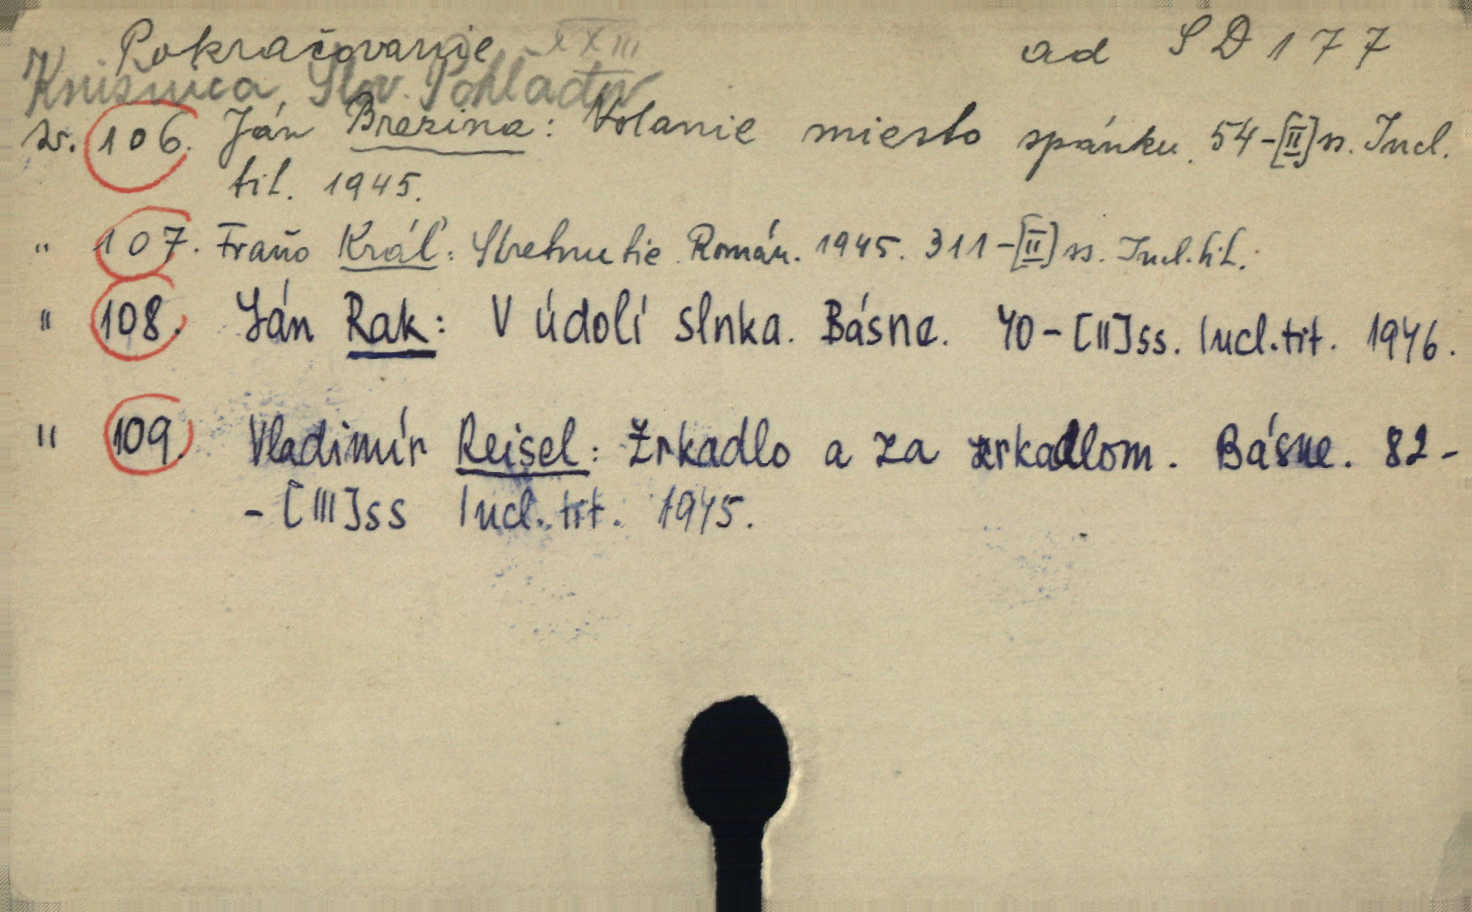 Pokračovanie XXIII ad SD 177
Knižnica Slov. Pohľadov
zv. 106. Ján Brezina: Volanie miesto spánku. 54-[II] ss. Incl.
tit. 1945.
" 107. Fraňo Kráľ: Stretnutie. Román. 1945. 311-[II] ss. Incl. tit.
" 108. Ján Rak: V údolí slnka. Básne. 40-[II] ss. Incl. tit. 1946.
" 109. Vladimír Reisel: Zrkadlo a za zrkadlom. Básne. 82-
-[III] ss Incl. tit. 1945.